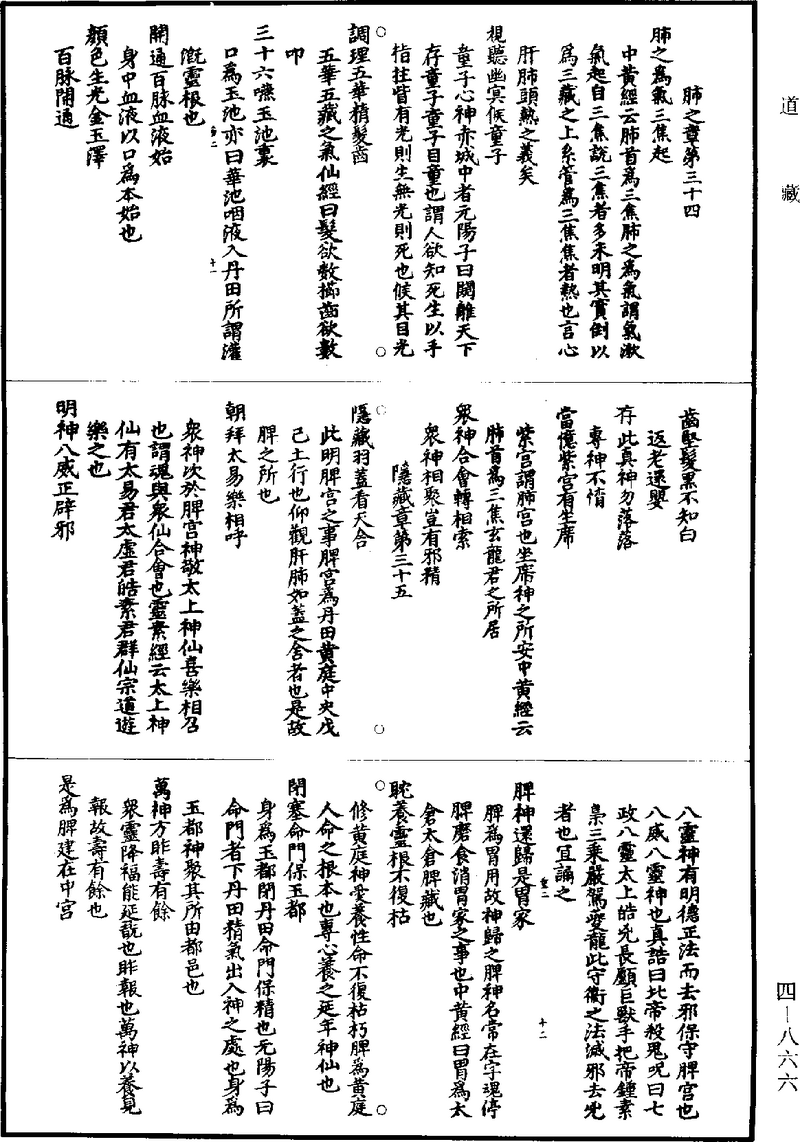 道藏
肺之章第三十四
肺之為氣三焦起
中黃經云肺首為三焦肺之為氣謂氣漱
氣起自三焦說三焦者多未明其實倒以
為三藏之上系管為三焦焦者熱也言心
肝肺頭熱之義矣
視聽幽冥候童子
童子心神亦城中者元陽子曰閼離天下
存童子童子目童也謂人欲知死生以手
指拄眥有光則生無光則死也候其目光
調理五華精髮齒
五華五藏之氣仙經曰髮欲數櫛齒欲數
叩
三十六嚥玉池裏
口為玉池亦曰華池咽液入丹田所謂灌
溉靈根也
開通百脉血液始
身中血液以口為本始也
顏色生光金玉澤
百脉開通
齒堅髮黑不知白
返老還嬰
存此真神勿落落
專神不惰
當憶紫宮有坐席
紫宮謂肺宮也坐席神之所安中黃經云
肺首為三焦玄龍君之所居
眾神合會轉相索
眾神相聚豈有邪精
隱藏章第三十五
隱藏羽蓋看天舍
此明脾宮之事脾宮為丹田黃庭中央戊
己土行也仰觀肝肺如蓋之舍者也是故
脾之所也
朝拜太易樂相呼
眾神次於脾宮神敬太上神仙喜樂相召
也謂魂與眾仙合會也靈素經云太上神
仙有太易君太虛君皓素君群仙宗道遊
樂之也
明神八威正辟邪
八靈神有明德正法而去邪保守脾宮也
八威八靈神也真誥曰北帝殺鬼呪曰七
政八靈太上皓兇長顱巨獸手把帝鍾素
梟三乘嚴駕夔龍此守衛之法滅邪去兇
者也宜誦之
脾神還歸是胃家
脾為胃用故神歸之脾神名常在字魂停
脾磨食消胃家之事也中黃經曰胃為太
倉太倉脾藏也
耽養靈根不復枯
修黃庭神愛養性命不復枯朽脾為黃庭
人命之根本也專心養之延年神仙也
閉塞命門保玉都
身為玉都閉丹田命門保精也元陽子曰
命門者下丹田精氣出入神之處也身為
玉都神聚其所由都邑也
萬神方昨壽有餘
眾靈降福能延戩也昨報也萬神以養見
報故壽有餘也
是為脾建在中宮
四—八六六